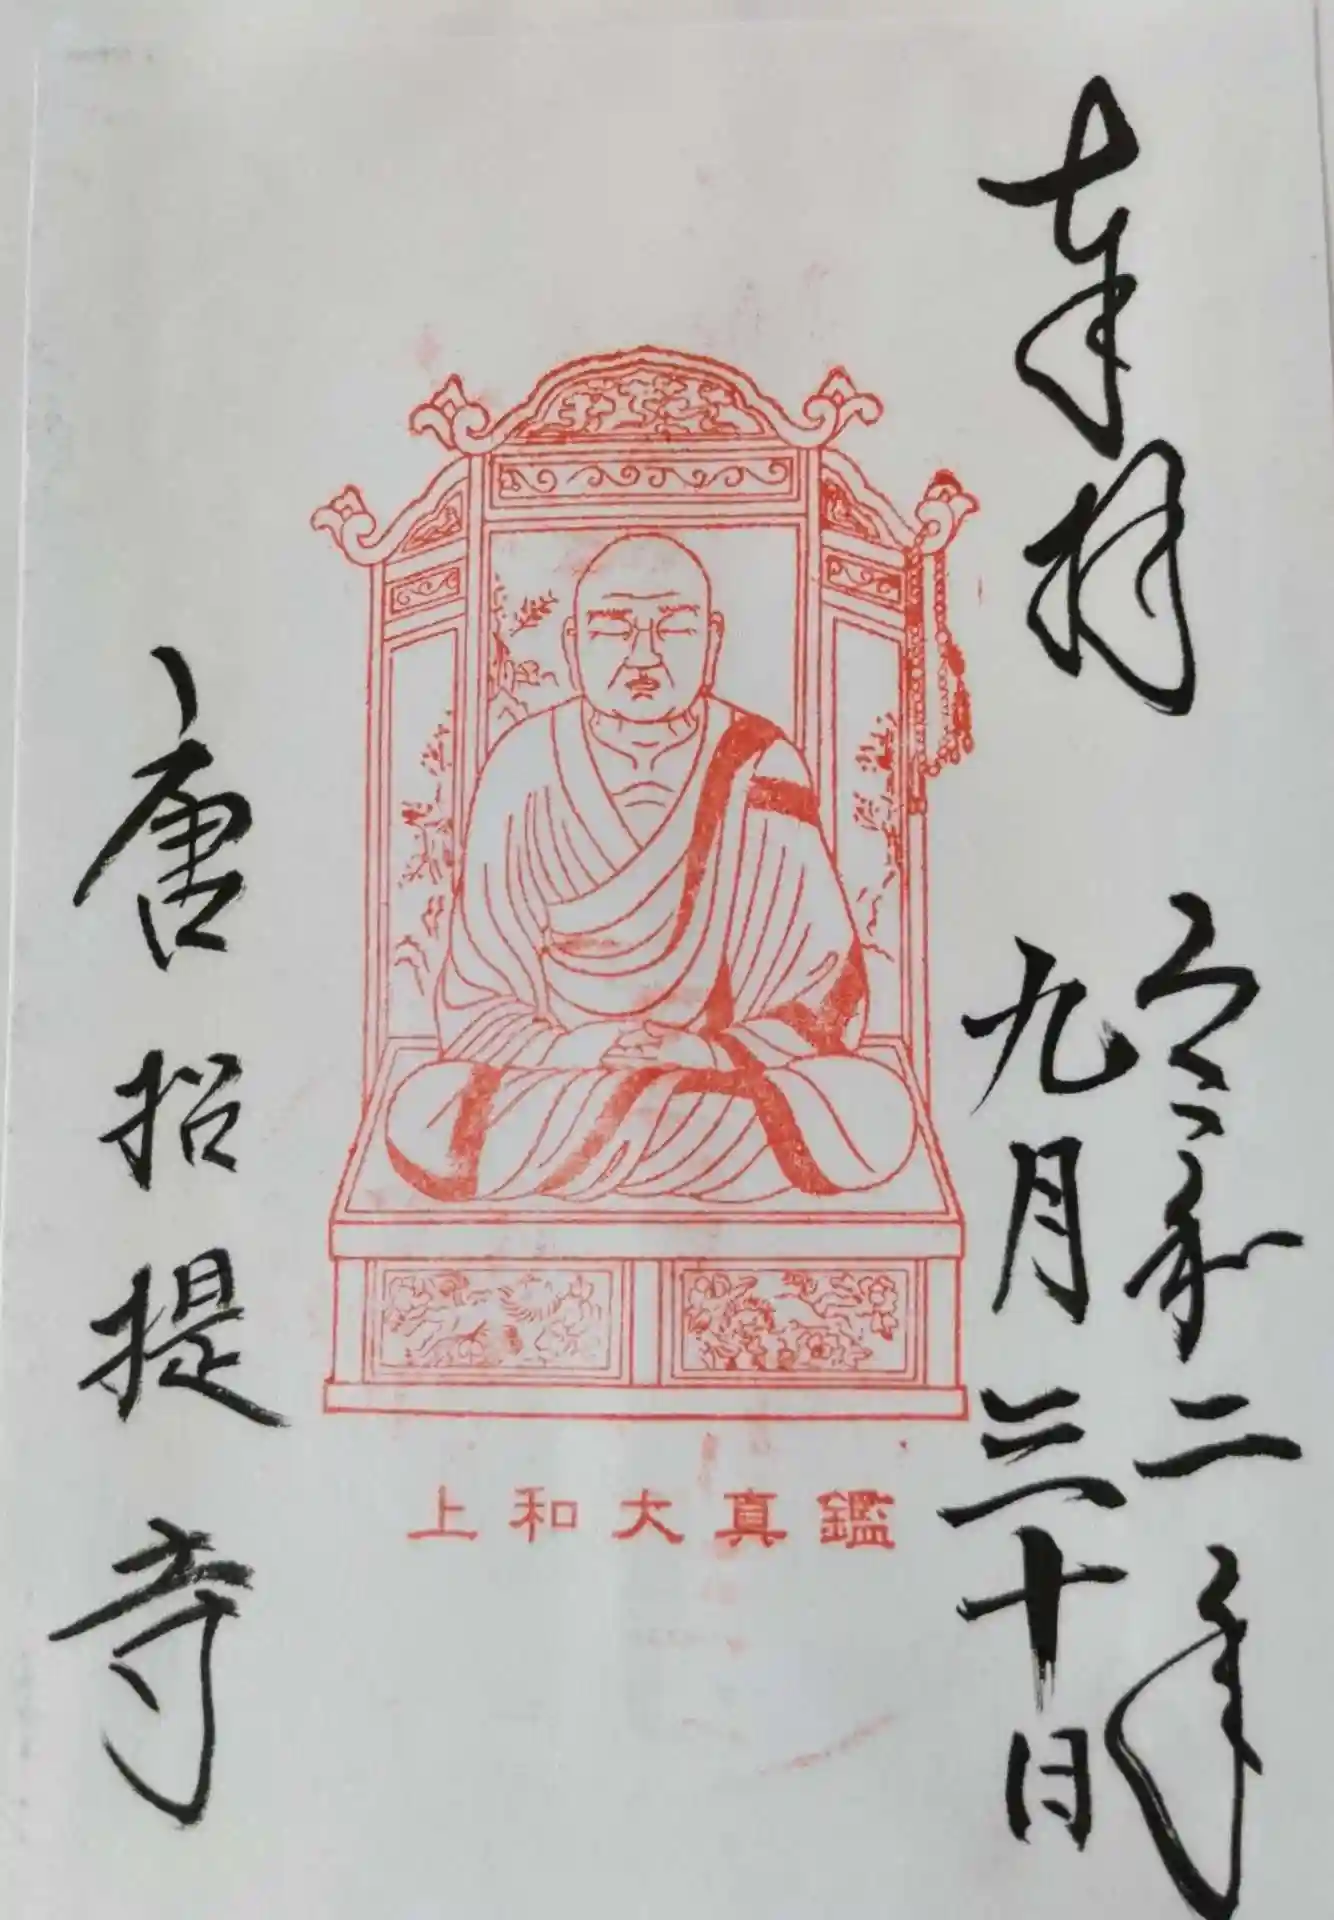 奉拝
令和二年
九月三十日
鑑真大和上
唐招提寺